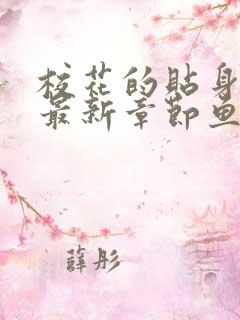 校花的贴身
最新章节鱼
薛彤